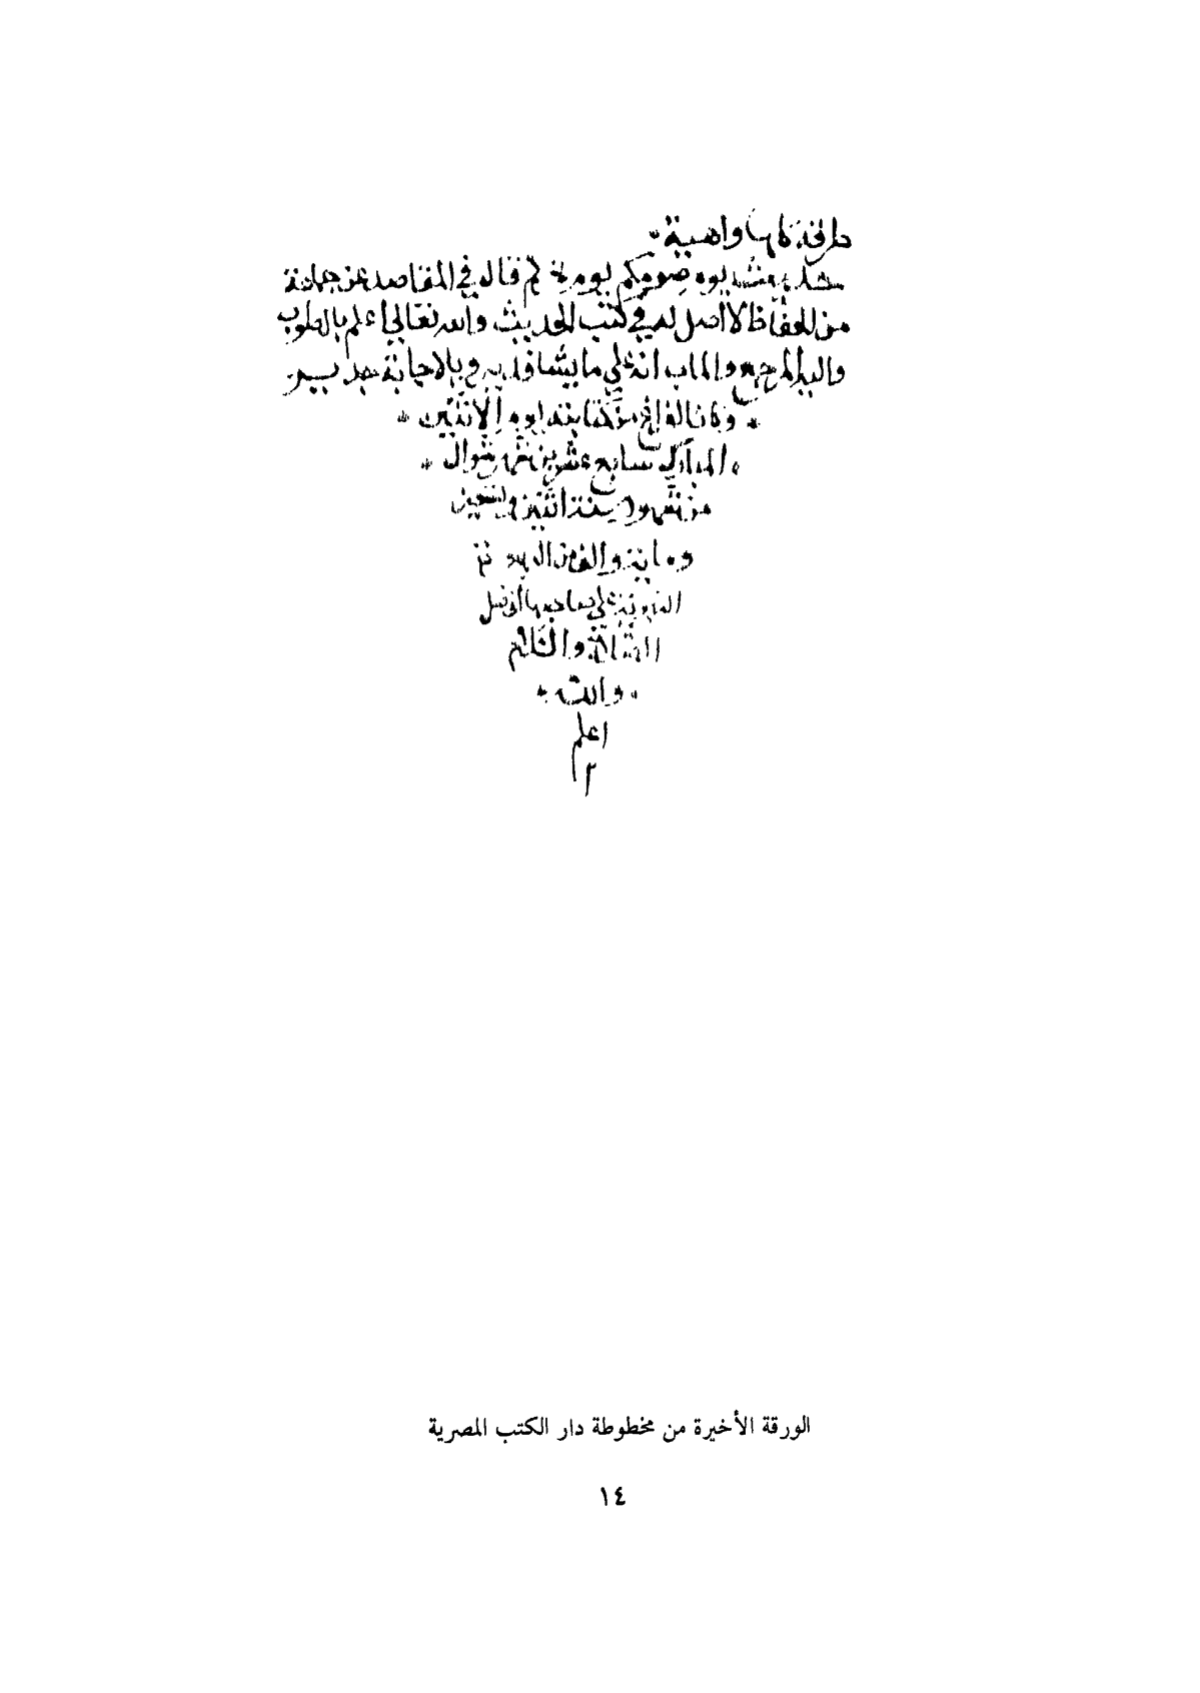 طرقه كلها واهية
حديث يوم صومكم يوم نحركم قال في المقاصد عن جماعة
من الحفاظ لا أصل له في كتب الحديث والله تعالى أعلم بالصواب
واليه المرجع والماب انه على ما يشا قدير وبالاجابة جدير
وكان الفراغ من كتابته يوم الاثنين
المبارك سابع عشرين شهر شوال
من شهور سنة اثنين وتسعين
ومايه والف من الهجرة
النبوية على صاحبها افضل
الصلاة والسلام
والله
اعلم
م
الورقة الأخيرة من مخطوطة دار الكتب المصرية
١٤